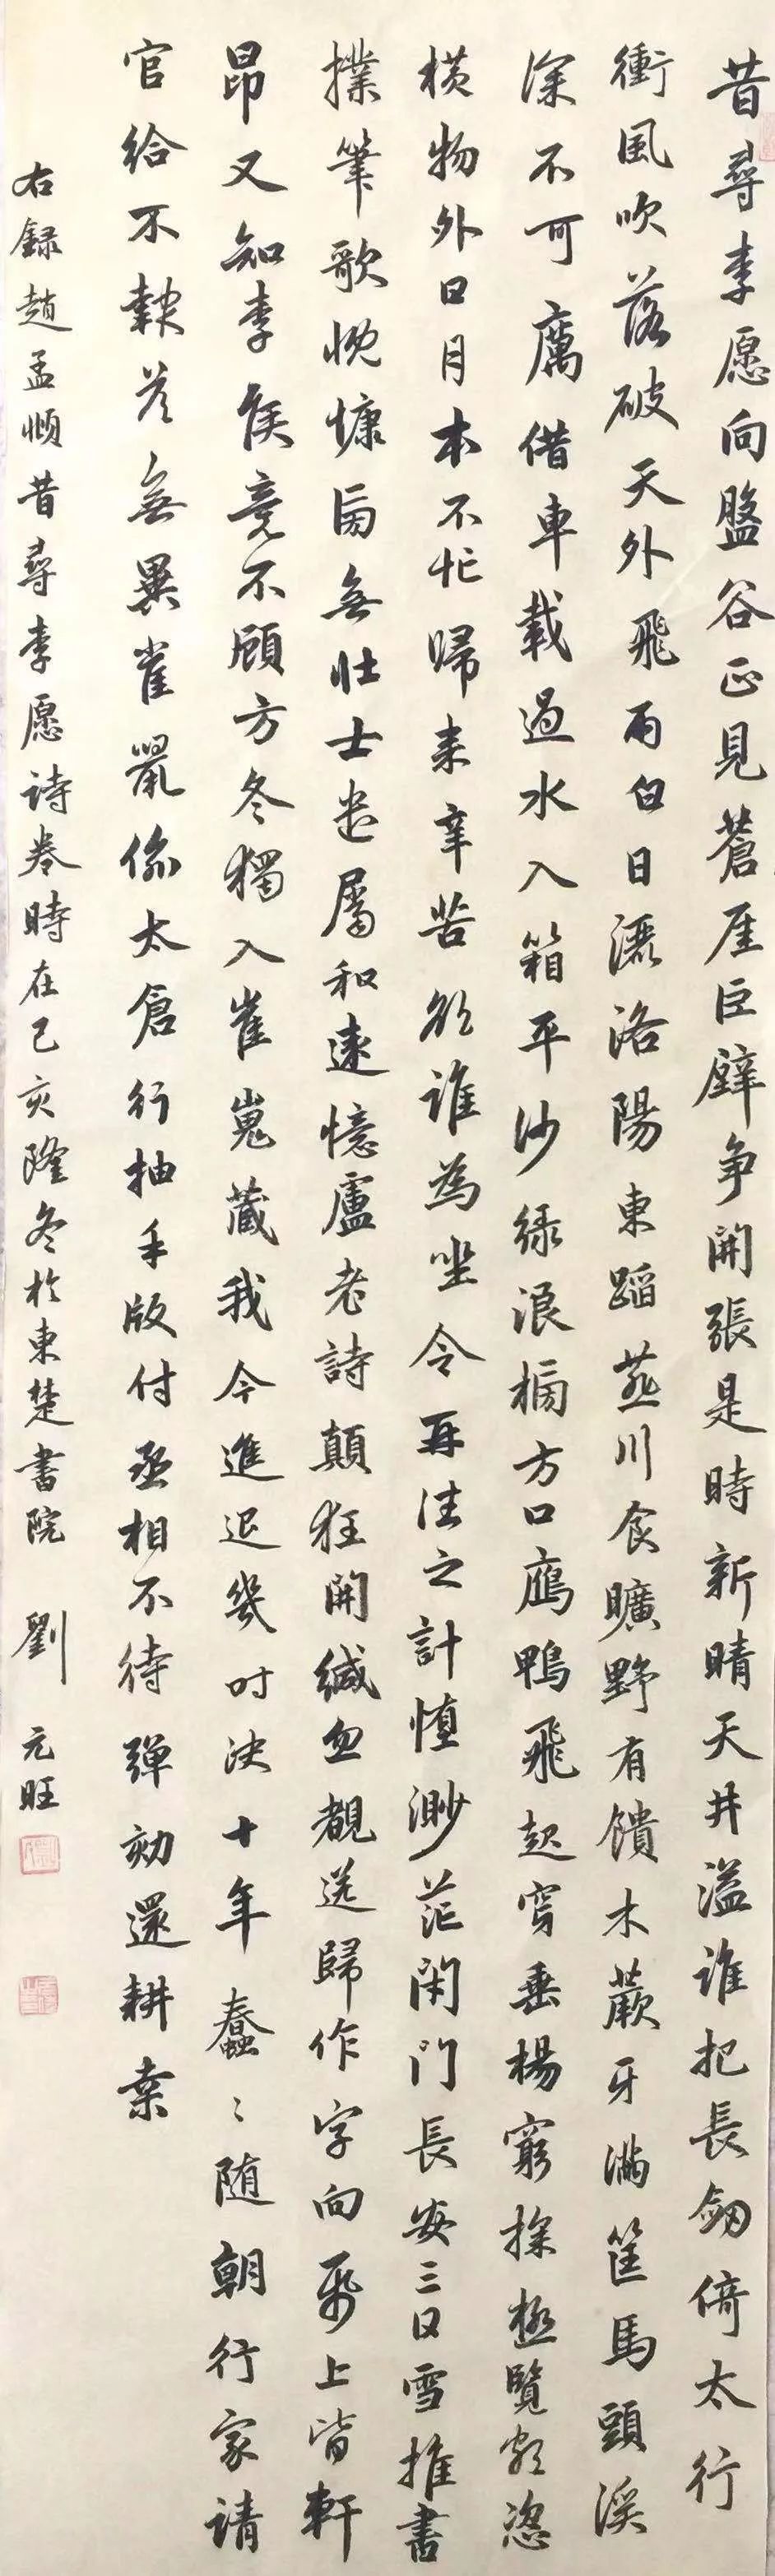 昔尋李愿向盤谷正見蒼崖巨壁争開張是時新晴天井溢誰把長劒倚太行
衝風吹落破天外飛雨白日灑洛陽東蹈燕川食曠野有饋木蕨牙滿筐馬頭溪
深不可厲借車載過水入箱平沙綠浪榜方口鴈鴨飛起穿垂楊窮探極覽頗恣
横物外日月本不忙歸来辛苦欲誰為坐令再往之計墮渺茫閑門長安三日雪推書
撲筆歌慨慷旁無壯士遣屬和遠憶盧老詩顛狂開緘忽覩送歸作字向帋上皆軒
昂又知李侯竟不顧方冬獨入崔嵬藏我今進退幾时决十年蠢〻随朝行家请
官給不報答無異雀鼠偷太倉行抽手版付丞相不待弹劾還耕桒
右録趙孟頫昔尋李愿诗卷時在己亥隆冬於東楚書院 劉元旺